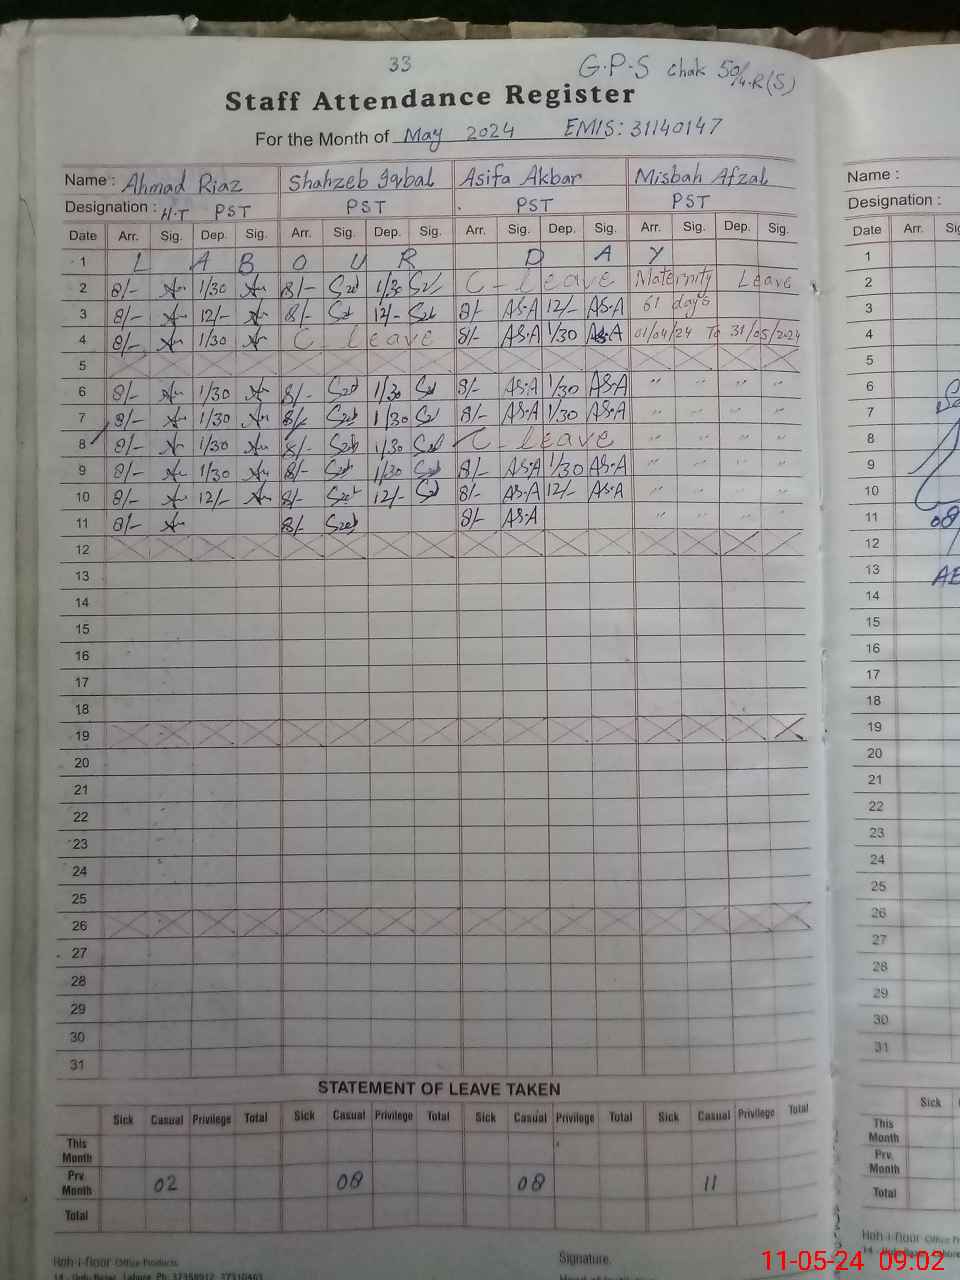 33
G.P-S Chak 50/4.R(S)
Staff Attendance Register
For the Month of May 2024 EMIS: 31140147
Name : Ahmad Riaz Shahzeb Iqbal Asifa Akbar Misbah Afzal Name :
Designation : H.T PST PST PST PST Designation :
Date Arr. Sig. Dep. Sig. Arr. Sig. Dep. Sig. Arr. Sig. Dep. Sig. Arr. Sig. Dep. Sig. Date Arr.
1 L A B O U R D A Y 1
2 8/- 1/30 8/- 1/30 C-leave Maternity Leave 2
3 8/- 12/- 8/- 12/- 8/- AS.A 12/- AS.A 61 days 3
4 8/- 1/30 C leave 8/- AS.A 1/30 AS.A 01/04/24 To 31/05/2024 4
5 5
6 8/- 1/30 8/- 1/30 8/- AS.A 1/30 AS.A " " " " 6
7 8/- 1/30 8/- 1/30 8/- AS.A 1/30 AS.A " " " " 7
8 8/- 1/30 8/- 1/30 C-leave " " " " 8
9 8/- 1/30 8/- 1/30 8/- AS.A 1/30 AS.A " " " " 9
10 8/- 12/- 8/- 12/- 8/- AS.A 12/- AS.A " " " " 10
11 8/- 8/- 8/- AS.A " " " " 11
12 12
13 13
14 14
15 15
16 16
17 17
18 18
19 19
20 20
21 21
22 22
23 23
24 24
25 25
26 26
27 27
28 28
29 29
30 30
31 31
STATEMENT OF LEAVE TAKEN
Sick Casual Privilege Total Sick Casual Privilege Total Sick Casual Privilege Total Sick Casual Privilege Total Sick
This Month This Month
Prv. Month 02 08 08 11 Prv. Month
Total Total
Roh-i-floor Office Products Signature.
11-05-24 09.02